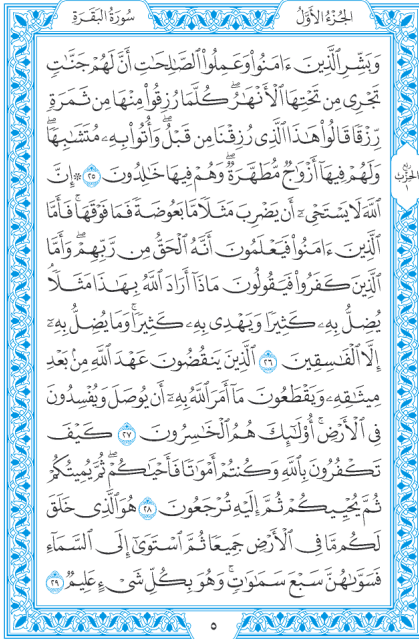 الجُزْءُ الأَوَّلُ
سُورَةُ البَقَرَةِ
وَبَشِّرِ ٱلَّذِينَ ءَامَنُوا۟ وَعَمِلُوا۟ ٱلصَّٰلِحَٰتِ أَنَّ لَهُمْ جَنَّٰتٍ
تَجْرِى مِن تَحْتِهَا ٱلْأَنْهَٰرُ ۖ كُلَّمَا رُزِقُوا۟ مِنْهَا مِن ثَمَرَةٍ
رِّزْقًا قَالُوا۟ هَٰذَا ٱلَّذِى رُزِقْنَا مِن قَبْلُ ۖ وَأُتُوا۟ بِهِۦ مُتَشَٰبِهًا ۖ
وَلَهُمْ فِيهَآ أَزْوَٰجٌ مُّطَهَّرَةٌ ۖ وَهُمْ فِيهَا خَٰلِدُونَ ٢٥ ۞ إِنَّ
رُبع الحِزْب
ٱللَّهَ لَا يَسْتَحْىِۦٓ أَن يَضْرِبَ مَثَلًا مَّا بَعُوضَةً فَمَا فَوْقَهَا ۚ فَأَمَّا
ٱلَّذِينَ ءَامَنُوا۟ فَيَعْلَمُونَ أَنَّهُ ٱلْحَقُّ مِن رَّبِّهِمْ ۖ وَأَمَّا
ٱلَّذِينَ كَفَرُوا۟ فَيَقُولُونَ مَاذَآ أَرَادَ ٱللَّهُ بِهَٰذَا مَثَلًا ۘ
يُضِلُّ بِهِۦ كَثِيرًا وَيَهْدِى بِهِۦ كَثِيرًا ۚ وَمَا يُضِلُّ بِهِۦٓ
إِلَّا ٱلْفَٰسِقِينَ ٢٦ ٱلَّذِينَ يَنقُضُونَ عَهْدَ ٱللَّهِ مِنۢ بَعْدِ
مِيثَٰقِهِۦ وَيَقْطَعُونَ مَآ أَمَرَ ٱللَّهُ بِهِۦٓ أَن يُوصَلَ وَيُفْسِدُونَ
فِى ٱلْأَرْضِ ۚ أُو۟لَٰٓئِكَ هُمُ ٱلْخَٰسِرُونَ ٢٧ كَيْفَ
تَكْفُرُونَ بِٱللَّهِ وَكُنتُمْ أَمْوَٰتًا فَأَحْيَٰكُمْ ۖ ثُمَّ يُمِيتُكُمْ
ثُمَّ يُحْيِيكُمْ ثُمَّ إِلَيْهِ تُرْجَعُونَ ٢٨ هُوَ ٱلَّذِى خَلَقَ
لَكُم مَّا فِى ٱلْأَرْضِ جَمِيعًا ثُمَّ ٱسْتَوَىٰٓ إِلَى ٱلسَّمَآءِ
فَسَوَّىٰهُنَّ سَبْعَ سَمَٰوَٰتٍ ۚ وَهُوَ بِكُلِّ شَىْءٍ عَلِيمٌ ٢٩
٥